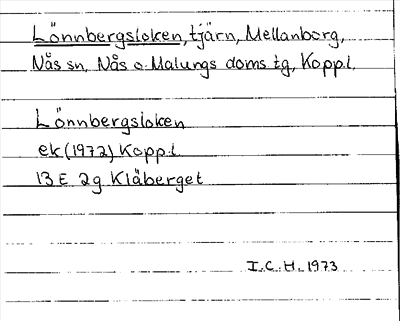 Lönnbergsloken, tjärn, Mellanborg,
Nås sn, Nås o. Malungs doms.tg, Kopp.l.
Lönnbergsloken
ek (1972) Kopp.l
13 E 2g Klåberget
I.C.H. 1973